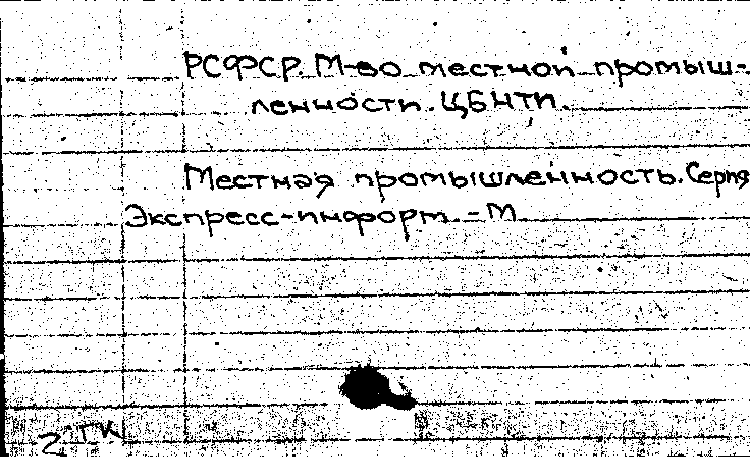 РСФСР. М-во местной промыш-
ленности. ЦБНТИ.
Местная промышленность. Серия
Экспресс-информ. - М
2 ТК